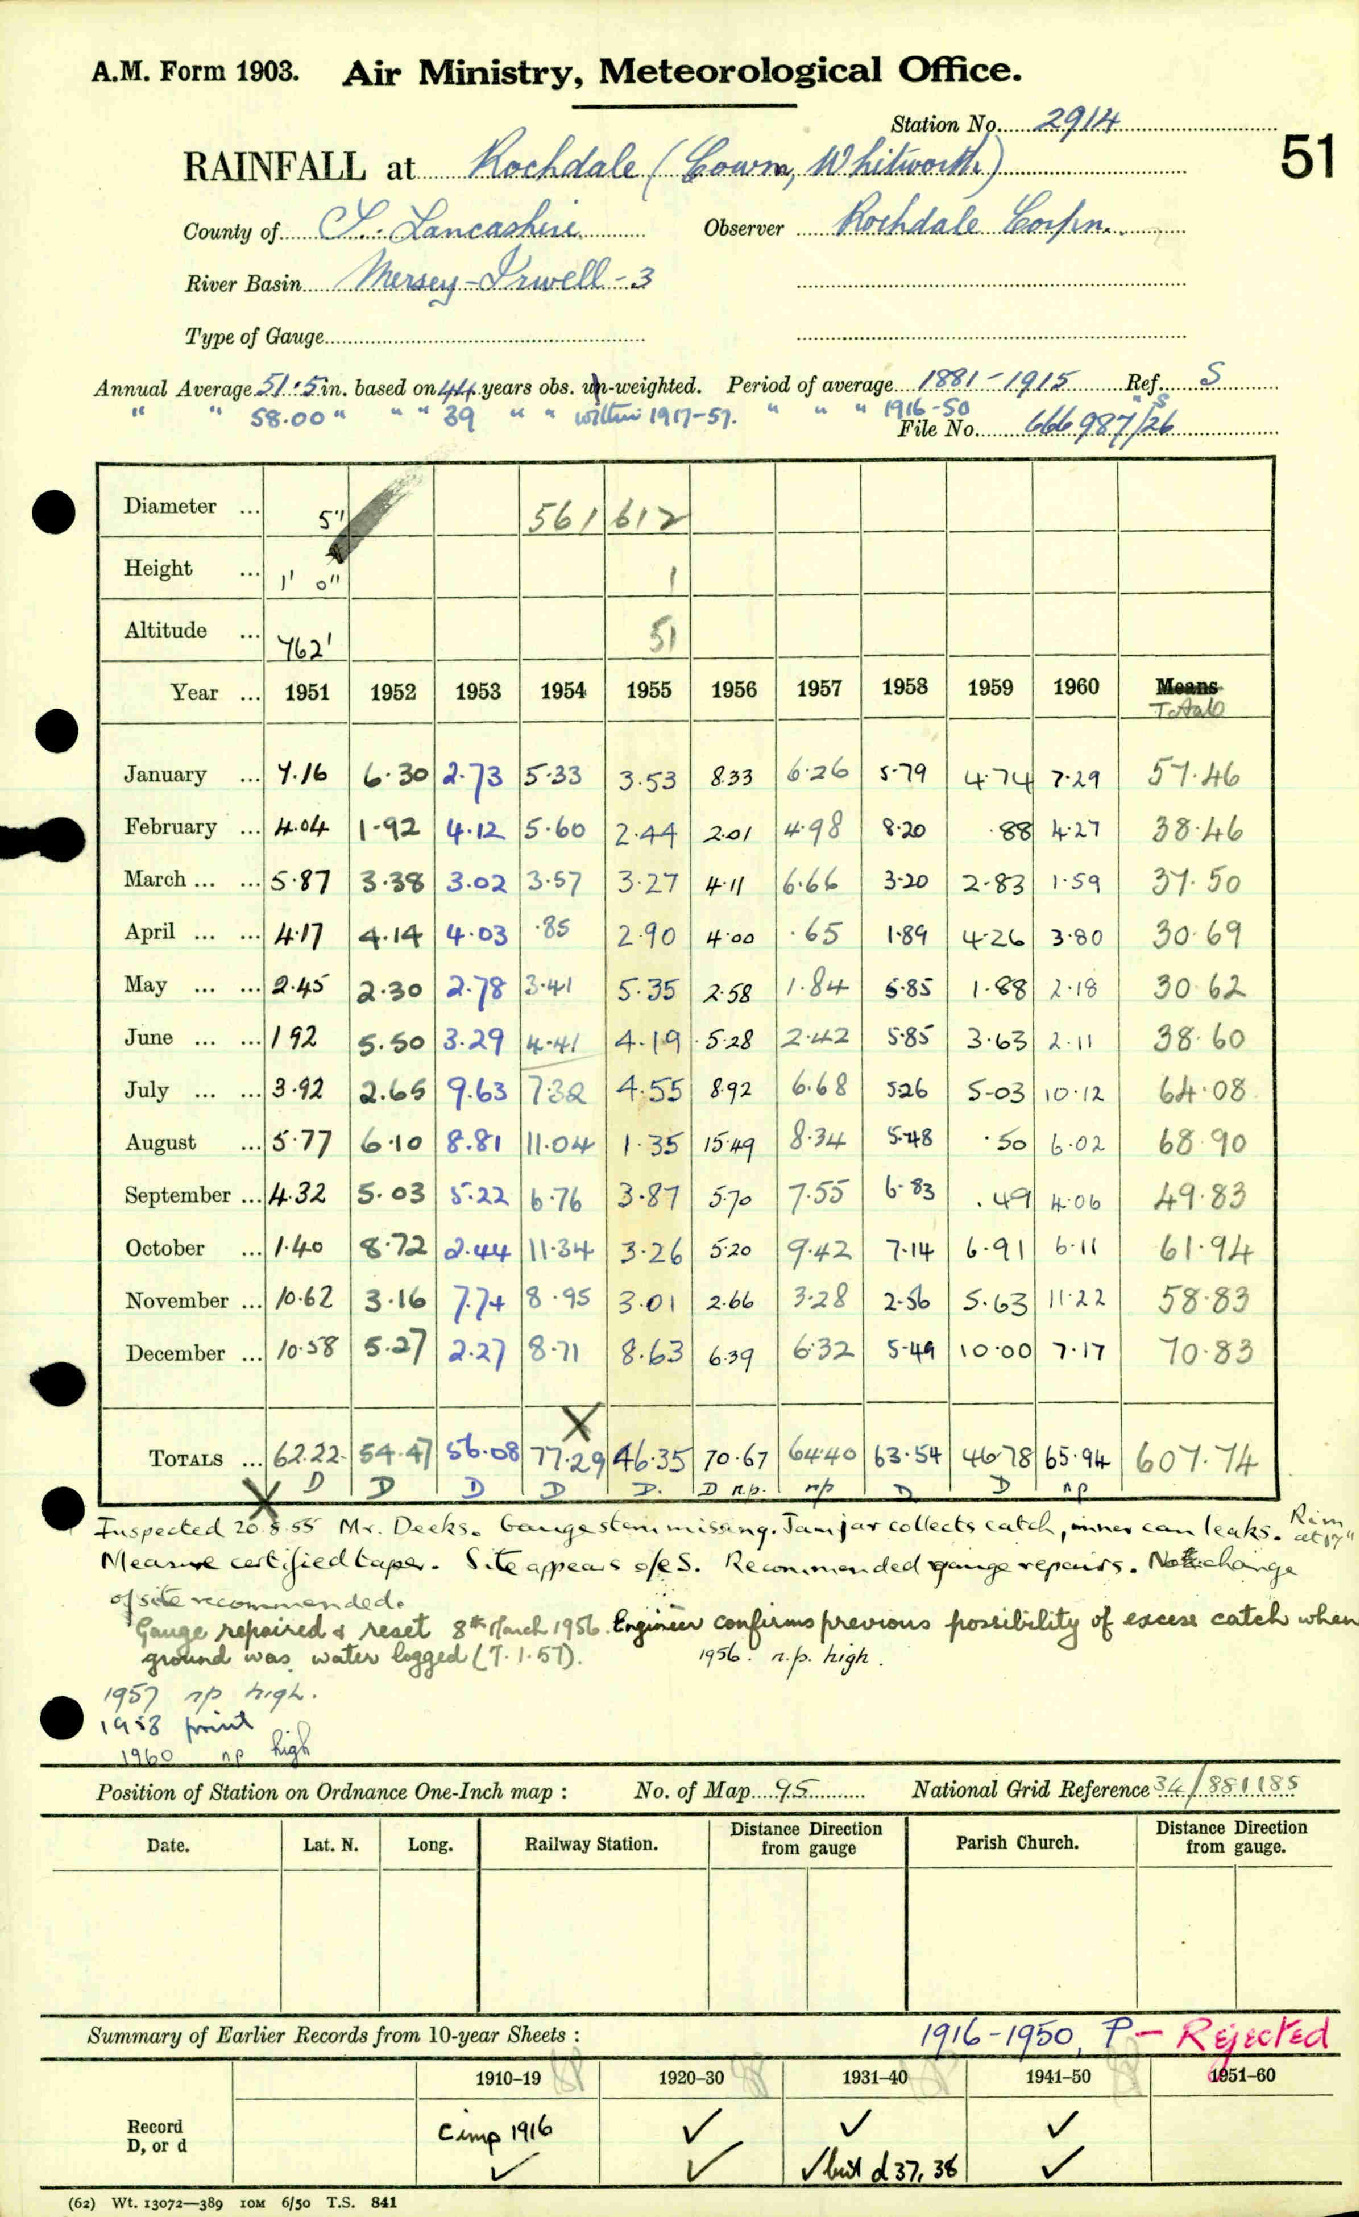 A.M. Form 1903. Air Ministry, Meteorological Office.
Station No. 2914
51
RAINFALL at Rochdale (Cowm, Whitworth)
County of S. Lancashire Observer Rochdale Corpn.
River Basin Mersey-Irwell-3
Type of Gauge
Annual Average 51.5 in. based on 44 years obs. un-weighted. Period of average 1881-1915 Ref. S
" " 58.00 " " " 39 " " within 1917-57. " " " 1916-50 " S
File No. 666987/26
Diameter ... 5" 561 612
Height ... 1' 0" 1
Altitude ... 762' 51
Year ... 1951 1952 1953 1954 1955 1956 1957 1958 1959 1960 Means
Totals
January ... 7.16 6.30 2.73 5.33 3.53 8.33 6.26 5.79 4.74 7.29 57.46
February ... 4.04 1.92 4.12 5.60 2.44 2.01 4.98 8.20 .88 4.27 38.46
March ... ... 5.87 3.38 3.02 3.57 3.27 4.11 6.66 3.20 2.83 1.59 37.50
April ... ... 4.17 4.14 4.03 .85 2.90 4.00 .65 1.89 4.26 3.80 30.69
May ... ... 2.45 2.30 2.78 3.41 5.35 2.58 1.84 5.85 1.88 2.18 30.62
June ... ... 1 92 5.50 3.29 4.41 4.19 5.28 2.42 5.85 3.63 2.11 38.60
July ... ... 3.92 2.65 9.63 7.32 4.55 8.92 6.68 5.26 5.03 10.12 64.08
August ... 5.77 6.10 8.81 11.04 1.35 15.49 8.34 5.48 .50 6.02 68.90
September ... 4.32 5.03 5.22 6.76 3.87 5.70 7.55 6.83 .49 4.06 49.83
October ... 1.40 8.72 2.44 11.34 3.26 5.20 9.42 7.14 6.91 6.11 61.94
November ... 10.62 3.16 7.74 8.95 3.01 2.66 3.28 2.56 5.63 11.22 58.83
December ... 10.58 5.27 2.27 8.71 8.63 6.39 6.32 5.49 10.00 7.17 70.83
X
TOTALS ... 62.22 54.47 56.08 77.29 46.35 70.67 64.40 63.54 46.78 65.94 607.74
X D D D D D. D n.p. np D D np
Inspected 20.8.55 Mr. Deeks. Gauge stem missing. Jamjar collects catch, inner can leaks. Rim at 17"
Measure certified taper. Site appears o/e S. Recommended gauge repairs. No change
of site recommended.
Gauge repaired & reset 8th March 1956. Engineer confirms previous possibility of excess catch when
ground was water logged (7.1.57). 1956. n.p. high.
1957 np high.
1958 print
1960 np high
Position of Station on Ordnance One-Inch map : No. of Map 95 National Grid Reference 34/881185
Date. Lat. N. Long. Railway Station. Distance Direction from gauge Parish Church. Distance Direction from gauge.
Summary of Earlier Records from 10-year Sheets : 1916-1950, P - Rejected
1910–19 1920–30 1931–40 1941–50 1951–60
Record D, or d
Cimp 1916 ✓ ✓ ✓
✓ ✓ ✓ but d 37, 38 ✓
(62) Wt. 13072—389 10M 6/50 T.S. 841